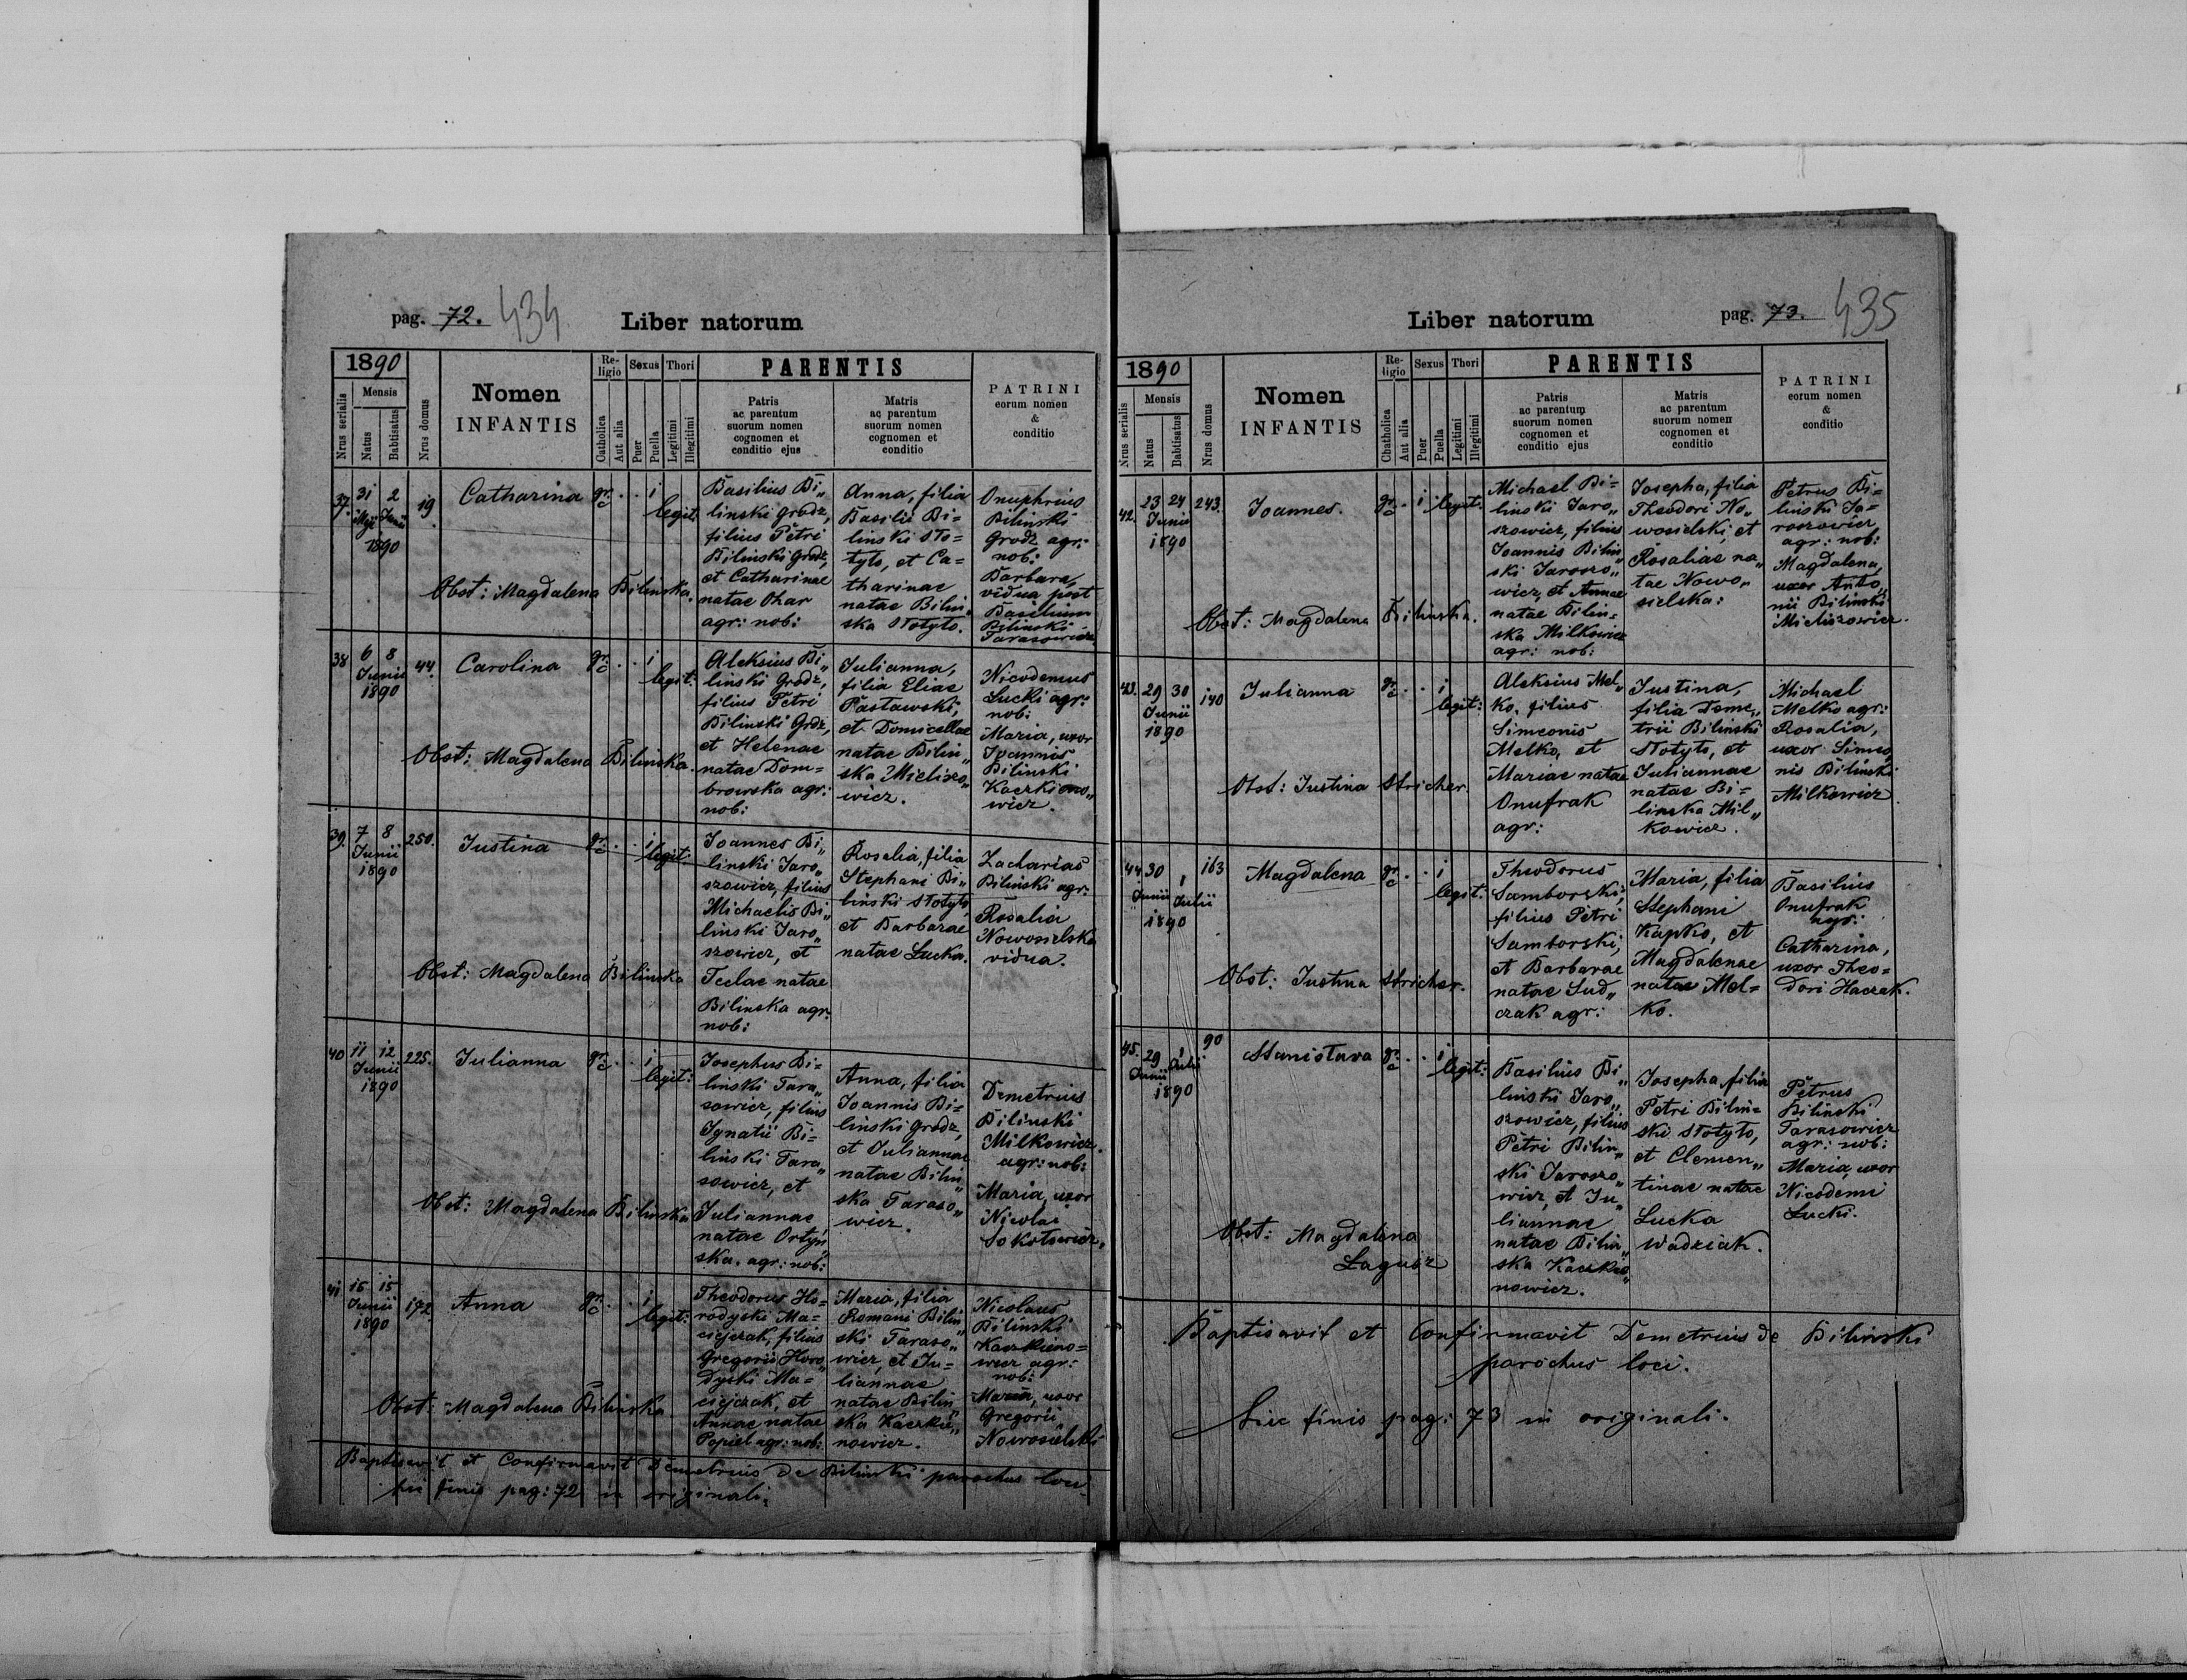 pag. 72. 434
Liber natorum
1890
Nrus serialis
Mensis
Natus
Babtisatus
Nrus domus
Nomen
INFANTIS
Re-
ligio
Catholica
Aut alia
Sexus
Puer
Puella
Thori
Legitimi
Illegitimi
PARENTIS
Patris
ac parentum
suorum nomen
cognomen et
conditio ejus
Matris
ac parentum
suorum nomen
cognomen et
conditio
PATRINI
eorum nomen
&
conditio
37.
31 2
Maji Junii
1890
19
Catharina
gr. c. . . i
legit.
Obst: Magdalena Bilinska.
Basilius Bi„
linski Grodz,
filius Petri
Bilinski Grodz,
et Catharinae
natae Ohar
agr: nob:
Anna, filia
Basilii Bi=
linski Sto=
tyto, et Ca=
tharinae
natae Bilin„
ska Stotyto.
Onuphrius
Bilinski
Grodz agr:
nob:
Barbara,
vidua post
Basilium
Bilinski
Tarasowicz
38
6 8
Junii
1890
44.
Carolina
gr. c. . . i
legit:
Obst: Magdalena Bilinska.
Aleksius Bi„
linski Grodz,
filius Petri
Bilinski Grdz,
et Helenae
natae Dom=
browska agr:
nob:
Julianna,
filia Eliae
Pastawski,
et Domicellae
natae Bilin„
ska Mieliszo„
wicz.
Nicodemus
Lucki agr:
nob:
Maria, uxor
Joannis
Bilinski
Kaczkiono„
wicz.
39.
7 8
Junii
1890
250.
Justina
gr. c. . . i
legit:
Obst: Magdalena Bilinska
Joannes Bi„
linski Jaro„
szowicz, filius
Michaelis Bi„
linski Jaro„
szowicz, et
Teclae natae
Bilinska agr:
nob:
Rosalia, filia
Stephani Bi„
linski Stotyto,
et Barbarae
natae Lucka.
Zacharias
Bilinski agr:
Rosalia
Nowosielska
vidua.
40
11 12.
Junii
1890
225.
Julianna
gr. c. . . i
legit:
Obst: Magdalena Bilinska
Josephus Bi=
linski Tara„
sowicz, filius
Ignatii Bi=
linski Tara„
sowicz, et
Juliannae
natae Ortyn„
ska. agr: nob:
Anna, filia
Joannis Bi=
linski Grodz,
et Juliannae
natae Bilin„
ska Taraso„
wicz.
Demetrius
Bilinski
Milkowicz.
agr: nob:
Maria, uxor
Nicolai
Sokotowicz.
41
15 15
Junii
1890
192
Anna
gr. c. . . i
legit:
Obst: Magdalena Bilinska
Theodorus Ho=
rodyski Ma=
ciejczak, filius
Gregorii Horo„
dyski Ma=
ciejczak, et
Annae natae
Popiel agr: nob:
Maria, filia
Romani Bilin„
ski Taraso„
wicz, et Ju=
liannae
natae Bilin„
ska Kaczkie„
nowicz.
Nicolaus
Bilinski
Kaczkieno=
wicz agr:
nob:
Maria, uxor
Gregorii
Nowosielski
Baptisavit et Confirmavit Demetrius de Bilinski parochus loci.
Sic finis pag: 72 in originali.
Liber natorum
pag. 73. 435
1890
Nrus serialis
Mensis
Natus
Babtisatus
Nrus domus
Nomen
INFANTIS
Re-
ligio
Chatholica
Aut alia
Sexus
Puer
Puella
Thori
Legitimi
Illegitimi
PARENTIS
Patris
ac parentum
suorum nomen
cognomen et
conditio ejus
Matris
ac parentum
suorum nomen
cognomen et
conditio
PATRINI
eorum nomen
&
conditio
42.
23 24
Junii
1890
243.
Joannes.
gr. c. . i . legit:
Obst: Magdalena Bilinska.
Michael Bi=
linski Jaro„
szowicz, filius
Joannis Bilin„
ski Jaroszo„
wicz, et Annae
natae Bilin=
ska Milkowicz
agr: nob:
Josepha, filia
Theodori No„
wosielski, et
Rosaliae na„
tae Nowo„
sielska:
Petrus Bi=
linski Ja=
roszowicz
agr: nob:
Magdalena,
uxor Anto„
nii Bilinski
Mieliszowicz.
43.
29 30
Junii
1890
140
Julianna
gr. c. . . i
legit:
Obst: Justina Stricher.
Aleksius Mel„
ko, filius
Simeonis
Melko, et
Mariae natae
Onufrak
agr:
Justina,
filia Deme„
trii Bilinski
Stotyto, et
Juliannae
natae Bi=
linska Mil„
kowicz.
Michael
Melko agr:
Rosalia,
uxor Simeo„
nis Bilinski
Milkowicz
44
30 1
Junii Julii
1890
163
Magdalena
gr. c. . . i
legit.
Obst: Justina Stricher.
Theodorus
Samborski,
filius Petri
Samborski,
et Barbarae
natae Sud„
czak agr:
Maria, filia
Stephani
Kapko, et
Magdalenae
natae Mel=
ko.
Basilius
Onufrak
agr:
Catharina,
uxor Theo=
dori Haczak.
45.
29 1
Junii Julii
1890
90
Stanistava
gr. c. . . i
legit:
Obst: Magdalena
Lagusz
Basilius Bi„
linski Jaro„
szowicz, filius
Petri Bilin„
ski Jaroszo„
wicz, et Ju„
liannae
natae Bilin„
ska Kaczkie„
nowicz.
Josepha, filia
Petri Bilin=
ski Stotyto,
et Clemen„
tinae natae
Lucka
Wadziak.
Petrus
Bilinski
Tarasowicz
agr: nob:
Maria, uxor
Nicodemi
Lucki.
Baptisavit et Confirmavit Demetrius de Bilinski
parochus loci.
Sic finis pag: 73 in originali.